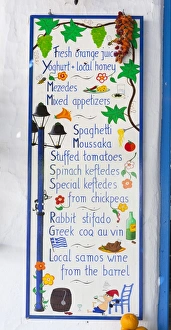 Fresh orange juice
Yoghurt + local honey
Mezedes
Mixed appetizers
Spaghetti
Moussaka
Stuffed tomatoes
Spinach keftedes
Special keftedes
from chickpeas
Rabbit stifado
Greek coq au vin
Local samos wine
from the barrel